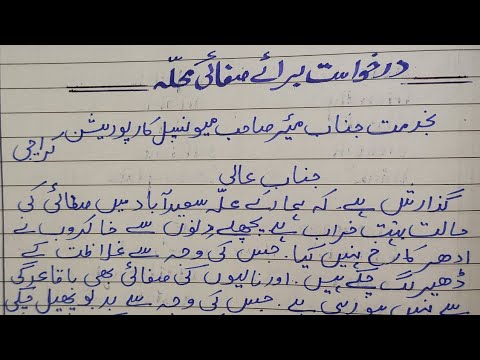 درخواست برائے صفائی محلّہ
بخدمت جناب میئر صاحب میونسپل کارپوریشن کراچی
جناب عالی
گذارش ہے۔ کہ ہمارے محلّہ سعیدآباد میں صفائی کی
حالت بہت خراب ہے۔ پچھلے دنوں سے خاکروب نے
ادھر کا رخ نہیں کیا۔ جس کی وجہ سے غلاظت کے
ڈھیر لگ چکے ہیں۔ اور نالیوں کی صفائی بھی باقاعدگی
سے نہیں ہو رہی ہے۔ جس کی وجہ سے بدبو پھیل چکی